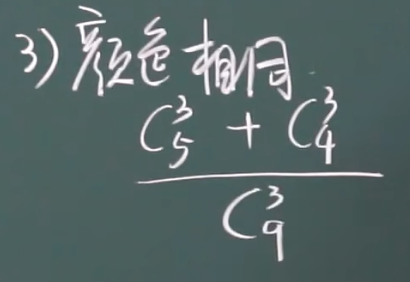 3) 颜色相同
C_5^3 + C_4^3
C_9^3